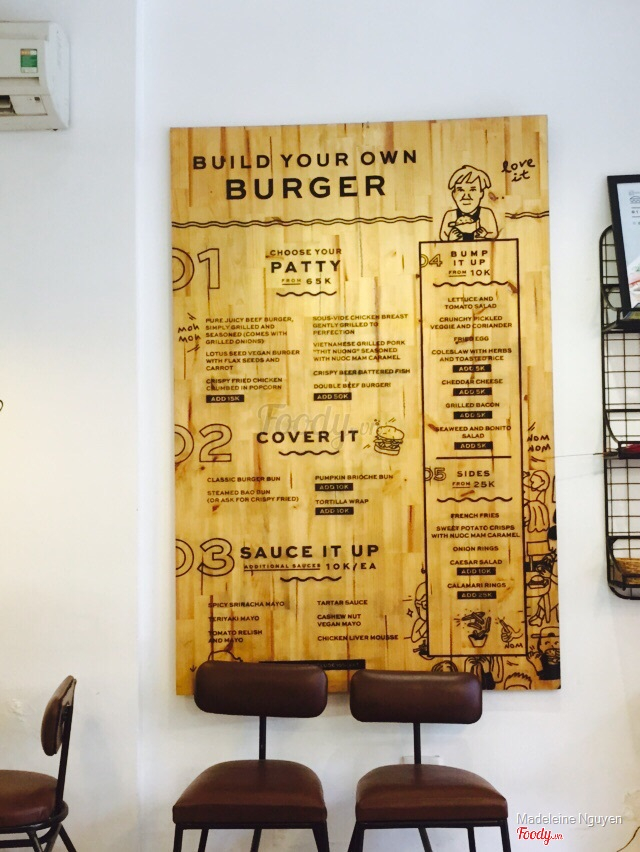 BUILD YOUR OWN
BURGER
love
it
01
CHOOSE YOUR
PATTY
FROM 65K
mom
mom
PURE JUICY BEEF BURGER,
SIMPLY GRILLED AND
SEASONED (COMES WITH
GRILLED ONIONS)
LOTUS SEED VEGAN BURGER
WITH FLAX SEEDS AND
CARROT
CRISPY FRIED CHICKEN
CRUMBED IN POPCORN
ADD 15K
SOUS-VIDE CHICKEN BREAST
GENTLY GRILLED TO
PERFECTION
VIETNAMESE GRILLED PORK
"THIT NUONG" SEASONED
WITH NUOC MAM CARAMEL
CRISPY BEER BATTERED FISH
DOUBLE BEEF BURGER!
ADD 50K
02
COVER IT
CLASSIC BURGER BUN
STEAMED BAO BUN
(OR ASK FOR CRISPY FRIED)
PUMPKIN BRIOCHE BUN
ADD 10K
TORTILLA WRAP
ADD 10K
03
SAUCE IT UP
ADDITIONAL SAUCES 10K/EA
SPICY SRIRACHA MAYO
TERIYAKI MAYO
TOMATO RELISH
AND MAYO
TARTAR SAUCE
CASHEW NUT
VEGAN MAYO
CHICKEN LIVER MOUSSE
04
BUMP
IT UP
FROM 10K
LETTUCE AND
TOMATO SALAD
CRUNCHY PICKLED
VEGGIE AND CORIANDER
FRIED EGG
COLESLAW WITH HERBS
AND TOASTED RICE
ADD 5K
CHEDDAR CHEESE
ADD 5K
GRILLED BACON
ADD 5K
SEAWEED AND BONITO
SALAD
ADD 5K
NOM
NOM
05
SIDES
FROM 25K
FRENCH FRIES
SWEET POTATO CRISPS
WITH NUOC MAM CARAMEL
ONION RINGS
CAESAR SALAD
ADD 10K
CALAMARI RINGS
ADD 25K
NOM
Foody.vn
Madeleine Nguyen
Foody.vn